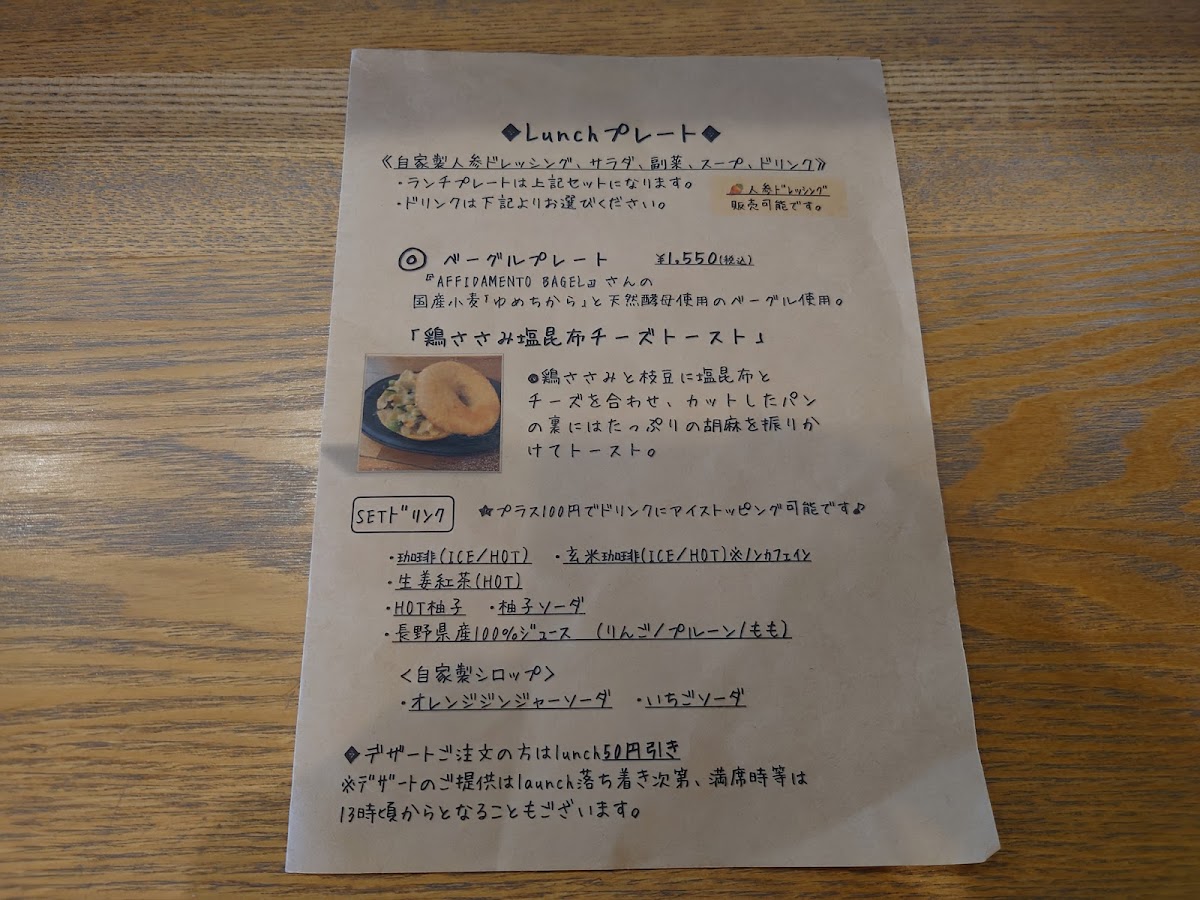 ◆Lunchプレート◆
《自家製人参ドレッシング、サラダ、副菜、スープ、ドリンク》
・ランチプレートは上記セットになります。
・ドリンクは下記よりお選びください。
人参ドレッシング
販売可能です。
◎ ベーグルプレート ¥1,550(税込)
『AFFIDAMENTO BAGEL』さんの
国産小麦「ゆめちから」と天然酵母使用のベーグル使用。
「鶏ささみ塩昆布チーズトースト」
◎鶏ささみと枝豆に塩昆布と
チーズを合わせ、カットしたパン
の裏にはたっぷりの胡麻を振りか
けてトースト。
SETドリンク ☆プラス100円でドリンクにアイストッピング可能です♪
・珈琲(ICE/HOT) ・玄米珈琲(ICE/HOT)※ノンカフェイン
・生姜紅茶(HOT)
・HOT柚子 ・柚子ソーダ
・長野県産100%ジュース (りんご/プルーン/もも)
<自家製シロップ>
・オレンジジンジャーソーダ ・いちごソーダ
◆デザートご注文の方はlunch50円引き
※デザートのご提供はlaunch落ち着き次第、満席時等は
13時頃からとなることもございます。